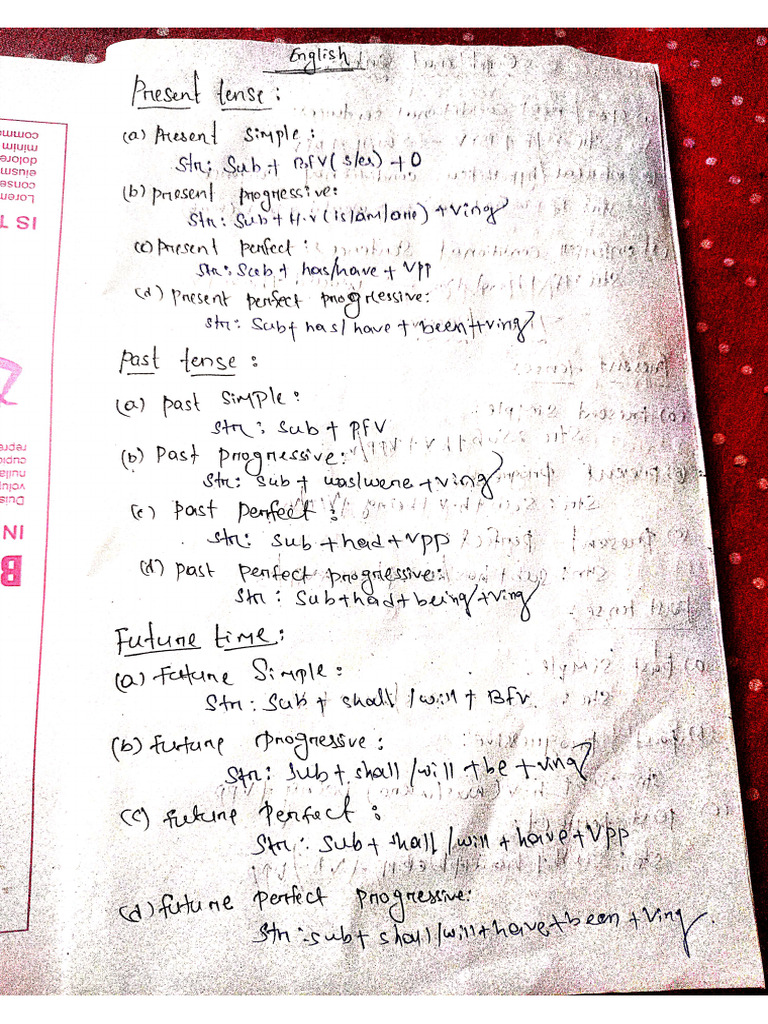 English
Present tense:
(a) Present simple:
Str: Sub + BFV(s/es) + O
(b) present progressive:
Str: Sub + H.v (is/am/are) + ving
(c) Present perfect:
Str: Sub + has/have + Vpp
(d) present perfect progressive:
Str: Sub + has/have + been + ving
Past tense:
(a) past simple:
Str: Sub + PFV
(b) Past progressive:
Str: Sub + was/were + ving
(c) past perfect:
Str: Sub + had + Vpp
(d) past perfect progressive:
Str: Sub + had + being + ving
Future time:
(a) future simple:
Str: Sub + shall /will + BFV.
(b) future progressive:
Str: Sub + shall /will + be + ving
(c) future perfect:
Str: Sub + shall /will + have + Vpp
(d) future perfect progressive:
Str: Sub + shall/will + have + been + ving.
comm
minim
dolore
eiusm
conse
Lorem
IS T
repre
cupid
nulla
volup
Duis
IN
B